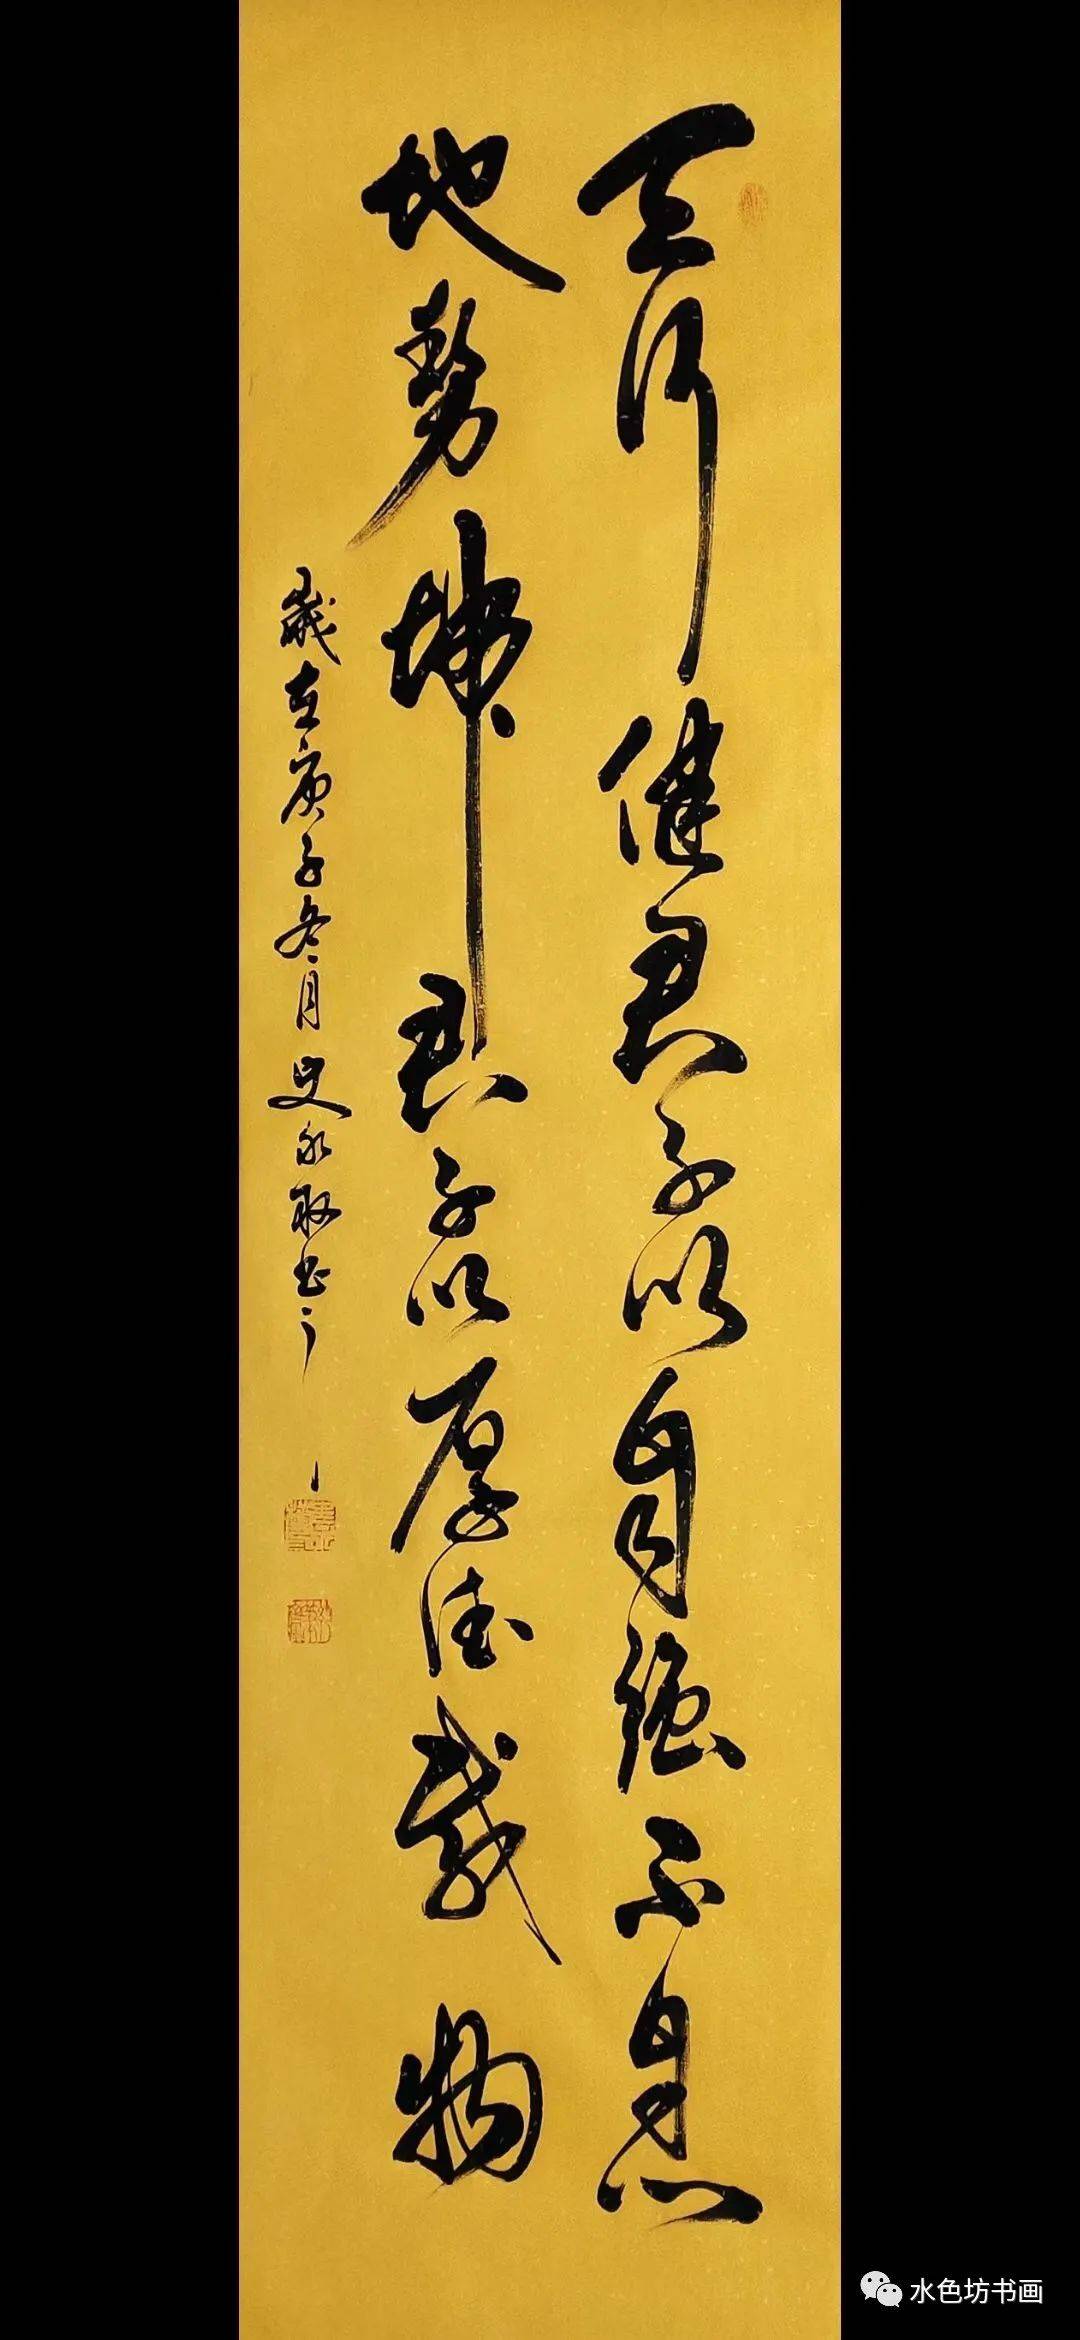 天行健君子以自强不息
地势坤君子以厚德载物
岁在庚子冬月史永敢书
水色坊书画